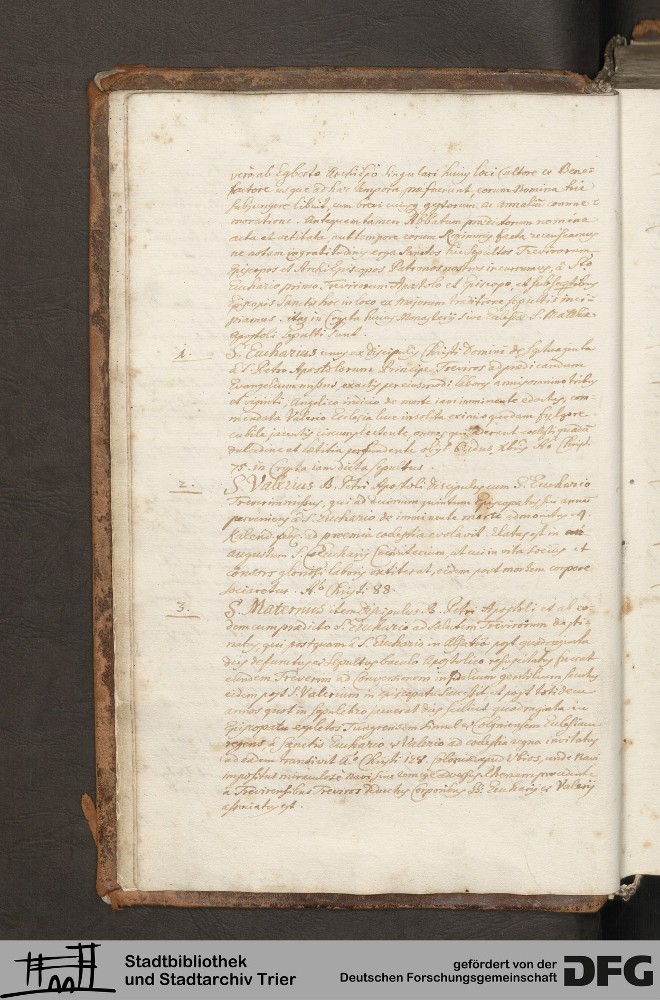 vero ab Egberto Archiepō singulari huius loci Cultore et Bene=
factore usque ad haec tempora praefuerunt, eorum Nomina hic
subiungere libuit, cum brevi cuiusq gestorum ac annalium comme=
moratione. Antequam tamen Abbatum praedictorum nomina
acta et vetitata aut tempore eorum Regiminis facta recenseamus
ne notam ingratitudinis erga Sanctos hic Sepultos Trevirorum
Episcopos et Archi Episcopos Patronos nostros incurramus, a Sto
Euchario primo Trevirorum Apostolo et Episcopo, et subsequentibus
Episcopis Sanctis hoc in loco ex majorum traditione sepultis inci=
piamus. itaq in Crypta huius Monasterij sive Ecclesiae S. Matthiae
Apostoli sepulti sunt.
1. S. Eucharius unus ex Discipulis Christi Domini de septuaginta
à S. Petro Apostolorum Principe Treviros ad praedicandum
Evangelium missus, exactis per eiusmodi labores annis omnino tribus
et viginti, Angelico indicio de morte iam imminente edoctus, com=
mendata Valerio Ecclesia luce insolita eximio quodam fulgore
cubile jacentis circumplectente, omnes qui aderant coelesti quadam
dulcedine et laetitia perfundente obijt 6 idus Xbris Aō Christi
75. in Crypta iam dicta sepultus.
2. S. Valerius B. Petri Apostoli discipulus cum S. Euchario
Treviros missus, qui ad decimum quintum Episcopatus sui annum
perveniens à S. Euchario de imminente morte admonitus 4
Kalend. feb. ad praemia coelestia evolavit. Elatus est in
augustum S. Eucharij Conditorium, ut cui in vita socius et
consors gloriosi laboris extiterat, eidem post mortem corpore
sociaretur. Aō Christi 88.
3. S. Maternus item discipulus B. Petri Apostoli et ab eo=
dem cum praedicto S. Euchario ad salutem Trevirorum desti=
natus, qui postquam à S. Euchario in Alsatia post quadraginta
dies defunctus et sepultus baculo Apostolico resuscitatus fuerat
eundem Treverim ad Conversionem infidelium gentilium secutus
eidem post S. Valerium in episcopatu successit et post totidem
annos quot in sepulchro jacuerat dies scilicet quadraginta in
Episcopatu expletos Tungrensem simul et Coloniensem Ecclesiam
regens, à sanctis Euchario et Valerio ad coelestia regna invitatus
ad eadem transivit Aō Christi 128. Coloniae apud Ubios, unde navi
impositus miraculose navi sine remige adverso Rheno procedente
a Trevirensibus Treviros deductus Corporibus SS. Eucharij et Valerij
associatus est.
Stadtbibliothek
und Stadtarchiv Trier
gefördert von der
Deutschen Forschungsgemeinschaft
DFG